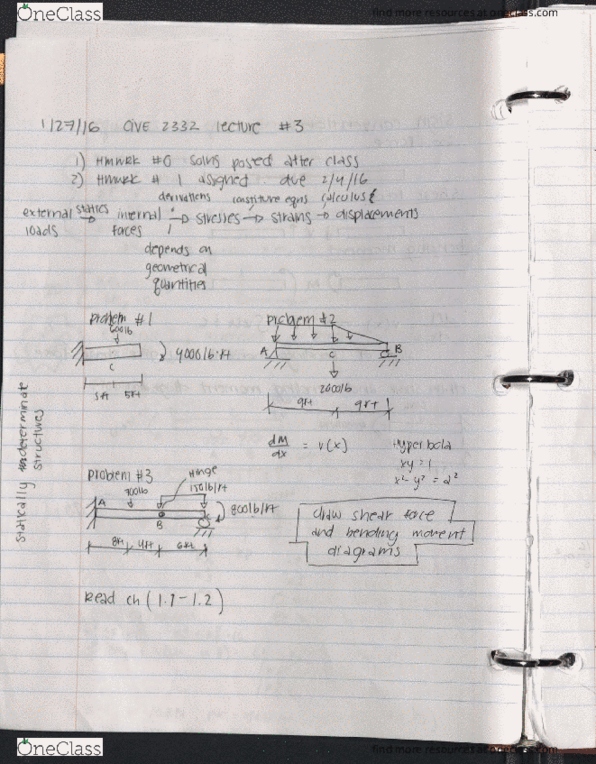 OneClass
find more resources at oneclass.com
1/27/16 CIVE 2332 lecture #3
1) HMWRK #0 solns posted after class
2) HMWRK # 1 assigned due 2/4/16
derivations constitutive eqns calculus &
external statics → internal → stresses → strains → displacements
loads forces
depends on
geometrical
quantities
problem #1
600lb
4000 lb·ft
C
5ft 5ft
problem #2
A C B
2600lb
9ft 9ft
dM/dx = V(x)
Hyperbola
xy = 1
x² - y² = a²
statically indeterminate
structures
problem #3
Hinge
700lb 150lb/ft
A B C
800lb/ft
8ft 4ft 6ft
draw shear force
and bending moment
diagrams
Read ch (1.1 - 1.2)
OneClass
find more resources at oneclass.com